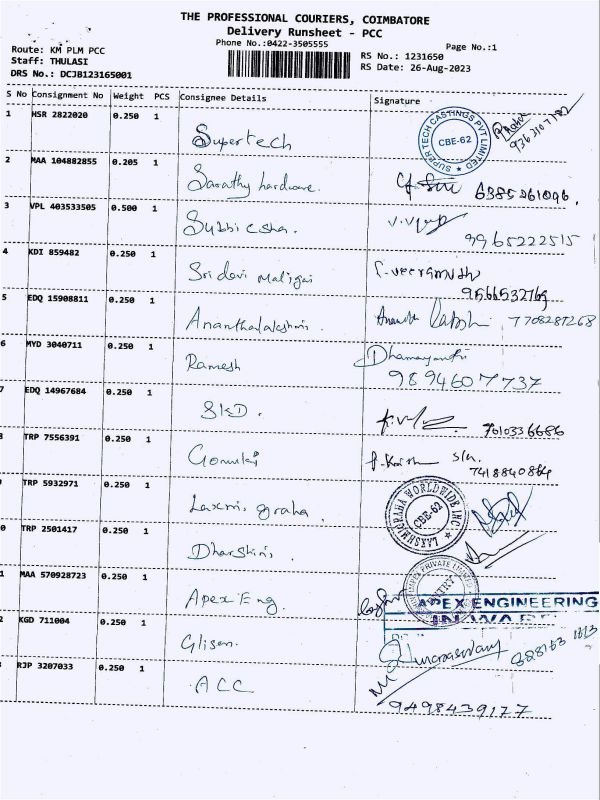 THE PROFESSIONAL COURIERS, COIMBATORE
Delivery Runsheet - PCC
Phone No.:0422-3505555
Page No.:1
Route: KM PLM PCC
Staff: THULASI
DRS No.: DCJB123165001
RS No.: 1231650
RS Date: 26-Aug-2023
S No Consignment No Weight PCS Consignee Details Signature
1 HSR 2822020 0.250 1 Supertech SUPERTECH CASTINGS PVT LIMITED CBE-62
2 MAA 104882855 0.205 1 Sarathy hardware. 6385261096.
3 VPL 403533505 0.500 1 Subbiesha. 9965222515
4 KDI 859482 0.250 1 Sri devi maligai 9566532769
5 EDQ 15908811 0.250 1 Ananthalakshmi. 7708287268
6 MYD 3040711 0.250 1 Ramesh Dhamayanthi 9894607737
7 EDQ 14967684 0.250 1 SKD. 7010336686
TRP 7556391 0.250 1 7418840864
TRP 5932971 0.250 1 Laxmi graha. LAKSHMIGRAHA WORLDWIDE INC. CBE-62
0 TRP 2501417 0.250 1 Dharshini.
1 MAA 570928723 0.250 1 Apex Eng. APEX ENGINEERING
INWARD
2 KGD 711004 0.250 1 Glisen.
RJP 3207033 0.250 1 ACC 9498439177